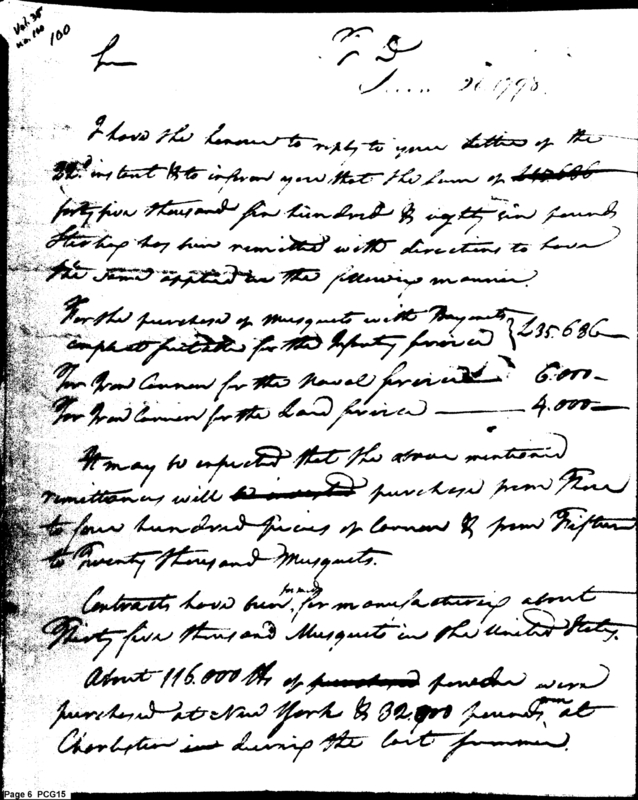 Vol. 35
no. 100
100
Sir
T D
1798.
I have the honour to reply to your Letter of the
22d. instant & to inform you that the sum of £45.686
forty five thousand six hundred & eighty six pounds
Sterling has been remitted with directions to have
the same applied in the following manner.
For the purchase of Musquets with Bayonets
compleat suitable for the Infantry service } £35.686—
For Iron Cannon for the Naval service 6.000—
For Iron Cannon for the Land service — 4.000—
It may be expected that the above mentioned
remittances will be invested purchase from Three
to four hundred pieces of Cannon & from Fifteen
to Twenty thousand Musquets.
Contracts have been formed for manufacturing about
Thirty five thousand Musquets in the United States.
About 116.000 lbs of purchased powder were
purchased at New York & 32.900 pounds at
Charleston in during the last summer.
Page 6 PCG15